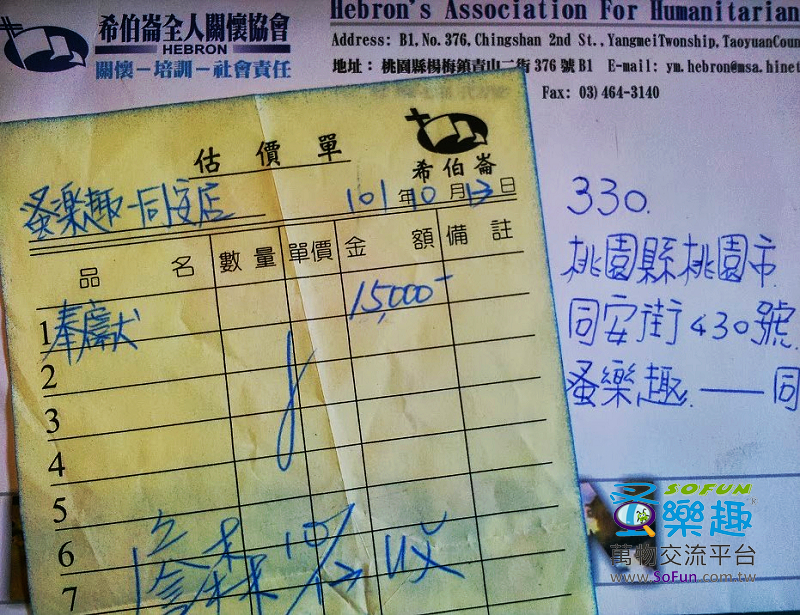 希伯崙全人關懷協會
HEBRON
關懷－培訓－社會責任
Hebron's Association For Humanitarian
Address: B1, No. 376, Chingshan 2nd St., YangmeiTwonship, TaoyuanCoun
地址： 桃園縣楊梅鎮青山二街 376 號 B1 E-mail: ym.hebron@msa.hinet
Fax: 03) 464-3140
估價單
希伯崙
蚤樂趣-同安店
101年10月13日
品名 數量 單價 金額 備註
1 奉獻 15,000-
2
3
4
5
6
7
10/
收
330.
桃園縣桃園市
同安街430號
蚤樂趣.——同
SOFUN
蚤樂趣
萬物交流平台
www.SoFun.com.tw